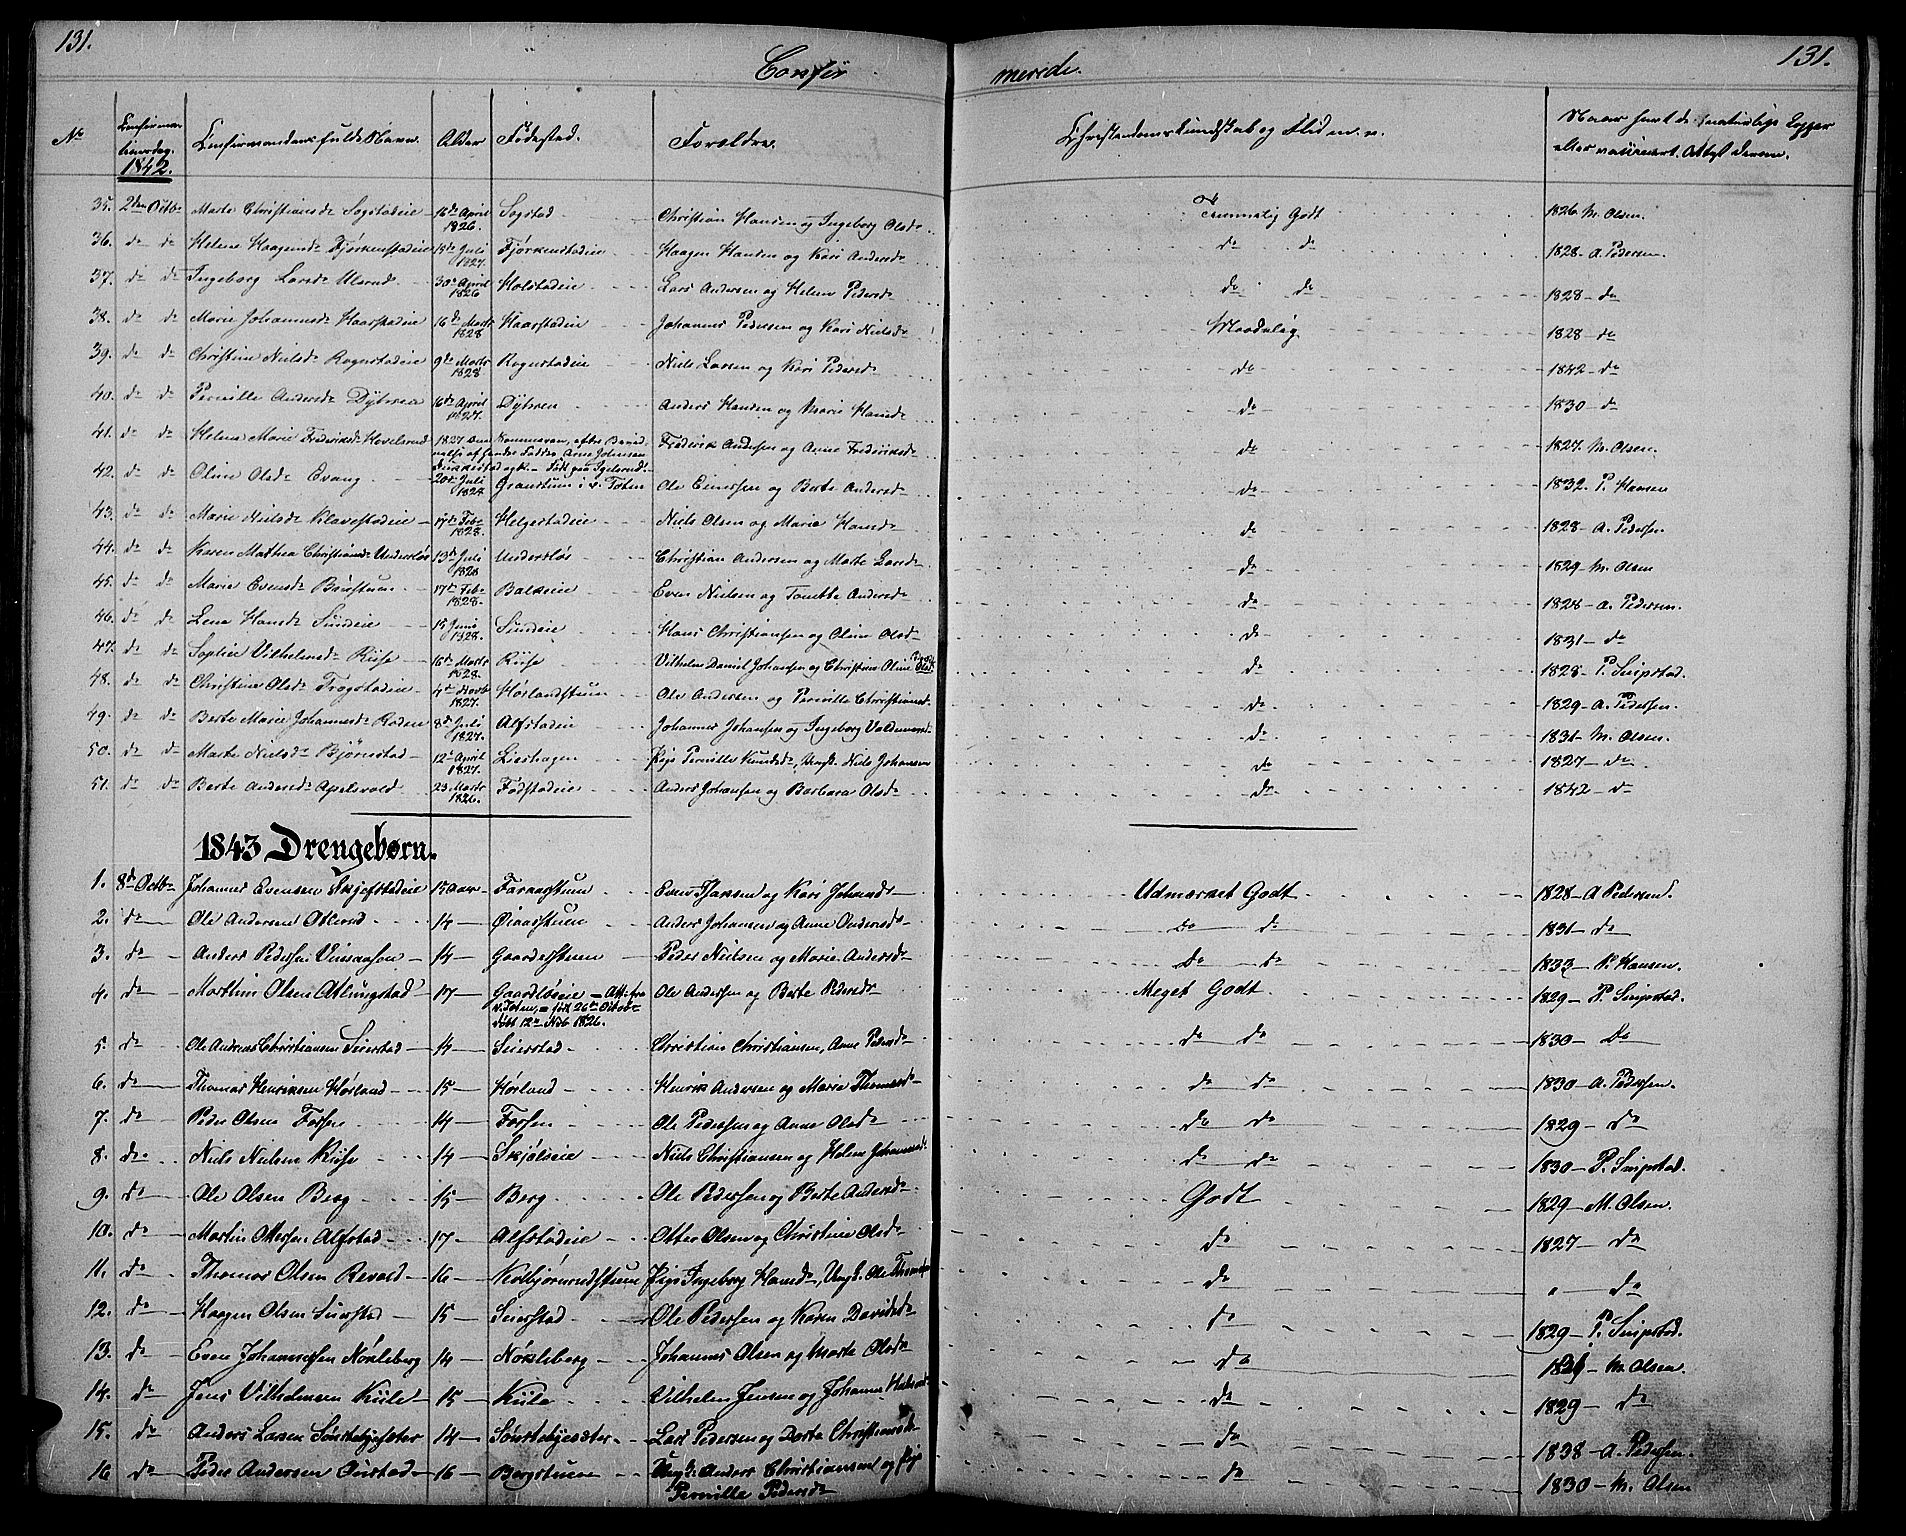 131. Confir merede. 131.
No Confirmationsdag. Confirmandens fulde Navn. Alder Fødestad. Forældre. Christendoms Kundskab og Fliid m. v. Naar havt de naturlige Copper eller vaccineret. Attest derom.
1842.
35. 2den Octb. Marte Christiansd. Sogstadeie 16de April 1826. Sogstad Christian Hansen og Ingeborg Olsd. Temmelig Godt 1826 M. Olsen.
36. do do Helene Haagensd. Fjørkenstadeie 15de Juli 1827. Fjørkenstadeie Haagen Hansen og Kari Andersd. do do 1828 A. Pedersen.
37. do do Ingeborg Larsd. Ulsrud 30te April 1826 Holstadeie Lars Andersen og Helene Pedersd. do do 1828 do
38. do do Marie Johannesd. Haarstadeie 16de Marts 1828 Haarstadeie Johannes Pedersen og Kari Nielsd. Maadelig 1828 do
39. do do Christine Nielsd. Rognstadeie 9de Marts 1828 Rognstadeie Niels Larsen og Kari Pedersd. do 1842 do
40. do do Pernille Andersd. Dybven 16de April 1827. Dybven Anders Hansen og Marie Hansd. do 1830 do
41. do do Helene Marie Frederiksd. Hovelsrud 1827 Frederik Andersen og Anne Frederiksd. do 1827. M. Olsen.
42. do do Oline Olsd. Evang 20de Juli 1828 Granstuen i v. Toten Ole Einersen og Berte Andersd. do 1832. P. Hansen
43. do do Marie Nielsd. Klavestadeie 17de Feb. 1828. Helgestadeie Niels Olsen og Marie Hansd. do 1828 A. Pedersen
44. do do Karen Mathea Christiansd. Undersløs 13de Juli 1828 Undersløs Christian Andersen og Marte Larsd. do 1829 M. Olsen
45. do do Marie Evensd. Brøstuen 17de Feb. 1828. Balkeie Even Nielsen og Tonette Andersd. do 1828 A. Pedersen.
46. do do Lene Hansd. Sundeie 15 Juni 1828. Sundeie Hans Christiansen og Oline Olsd. do 1831 do
47. do do Sophie Vilhelmsd. Riise 16de Marts 1828. Riise Vilhelm Daniel Johansen og Christine Oline Olsd. do 1828 P. Sivesstad.
48. do do Christine Olsd. Trogstadeie 4de Novb. 1827. Hørlandstuen Ole Andersen og Pernille Christiansd. do 1829 A. Pedersen.
49. do do Berte Marie Johannesd. Roden 8de Juli 1827. Alfstadeie Johannes Johansen og Ingeborg Valdemarsd. do 1831 M. Olsen.
50. do do Marte Nielsd. Bjørnstad 12te April 1827. Lieshagen Pige Pernille Knudsd., Ungk. Niels Johansen do 1827 do
51. do do Berte Andersd. Apelsvold 23. Marts 1826. Fødstadeie Anders Johansen og Barbara Olsd. do 1842 do
1843 Drengebørn.
1. 8de Octb. Johannes Evensen Skjefstadeie 15 aar Faraasstuen Even Hansen og Kari Johansd. Udmærket Godt 1828 A Pedersen.
2. do Ole Andersen Otterud 14 Øiaasstuen Anders Johansen og Anne Andersd. Do do 1831 do
3. do Anders Pedersen 14 Gaardestuen Peder Nielsen og Marie Andersd. Do do 1833 P. Hansen.
4. do Martin Olsen Allungstad 17 Gaardløseie Att. fra v. Toten, født 26de Octob. døbt 12te Nob. 1826. Ole Andersen og Berte Pedersd. Meget Godt 1829 P. Sivesstad.
5. do Ole Andreas Christiansen Seierstad 14 Seierstad Christian Christiansen, Anne Pedersd. do do 1830 Do
6. do Thomas Henriksen Hørland 15 Hørland Henrik Andersen og Marie Thomasd. do do 1830 A. Pedersen.
7. do Peder Olsen Fossen 14 Fossen Ole Pedersen og Anne Olsd. do do 1829 do
8. do Niels Nielsen Riise 14 Skjølseie Niels Christiansen og Helene Johannesd. do do 1830 P. Sivesstad.
9. do Ole Olsen Berg 15 Berg Ole Pedersen og Berte Andersd. Godt 1829 M. Olsen.
10. do Martin Ottersen Alfstad 17 Alfstadeie Otter Olsen og Christine Olsd. do 1827 do
11. do Thomas Olsen Revold 16 Kolbjørnrudstuen Pige Ingeborg Hansd., Ungk. Ole Thomsen do " do
12. do Haagen Olsen Seierstad 15 Seierstad Ole Pedersen og Karen Davidsd. do 1829 P. Sivesstad.
13. do Even Johannesen Nøkleberg 14 Nøkleberg Johannes Olsen og Marte Olsd. do 1831 M. Olsen.
14. do Jens Vilhelmsen Kiile 15 Kiile Vilhelm Jensen og Johanne do 1829 do
15. do Anders Larsen Sønstebysæter 14 Sønstebysæter Lars Pedersen og Dorte Christiansd. do 1838 A. Pedersen.
16 do Peder Andersen Ourstad 16 Bergstuen Ungk. Anders Christiansen og Pige do 1830 M. Olsen
Pernille Pedersd.